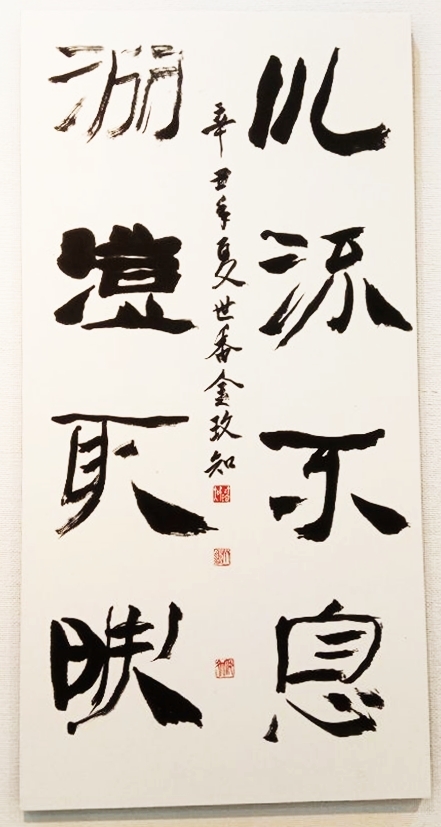 川流不息
淵澄取暎
辛丑年夏 世番 金玫知